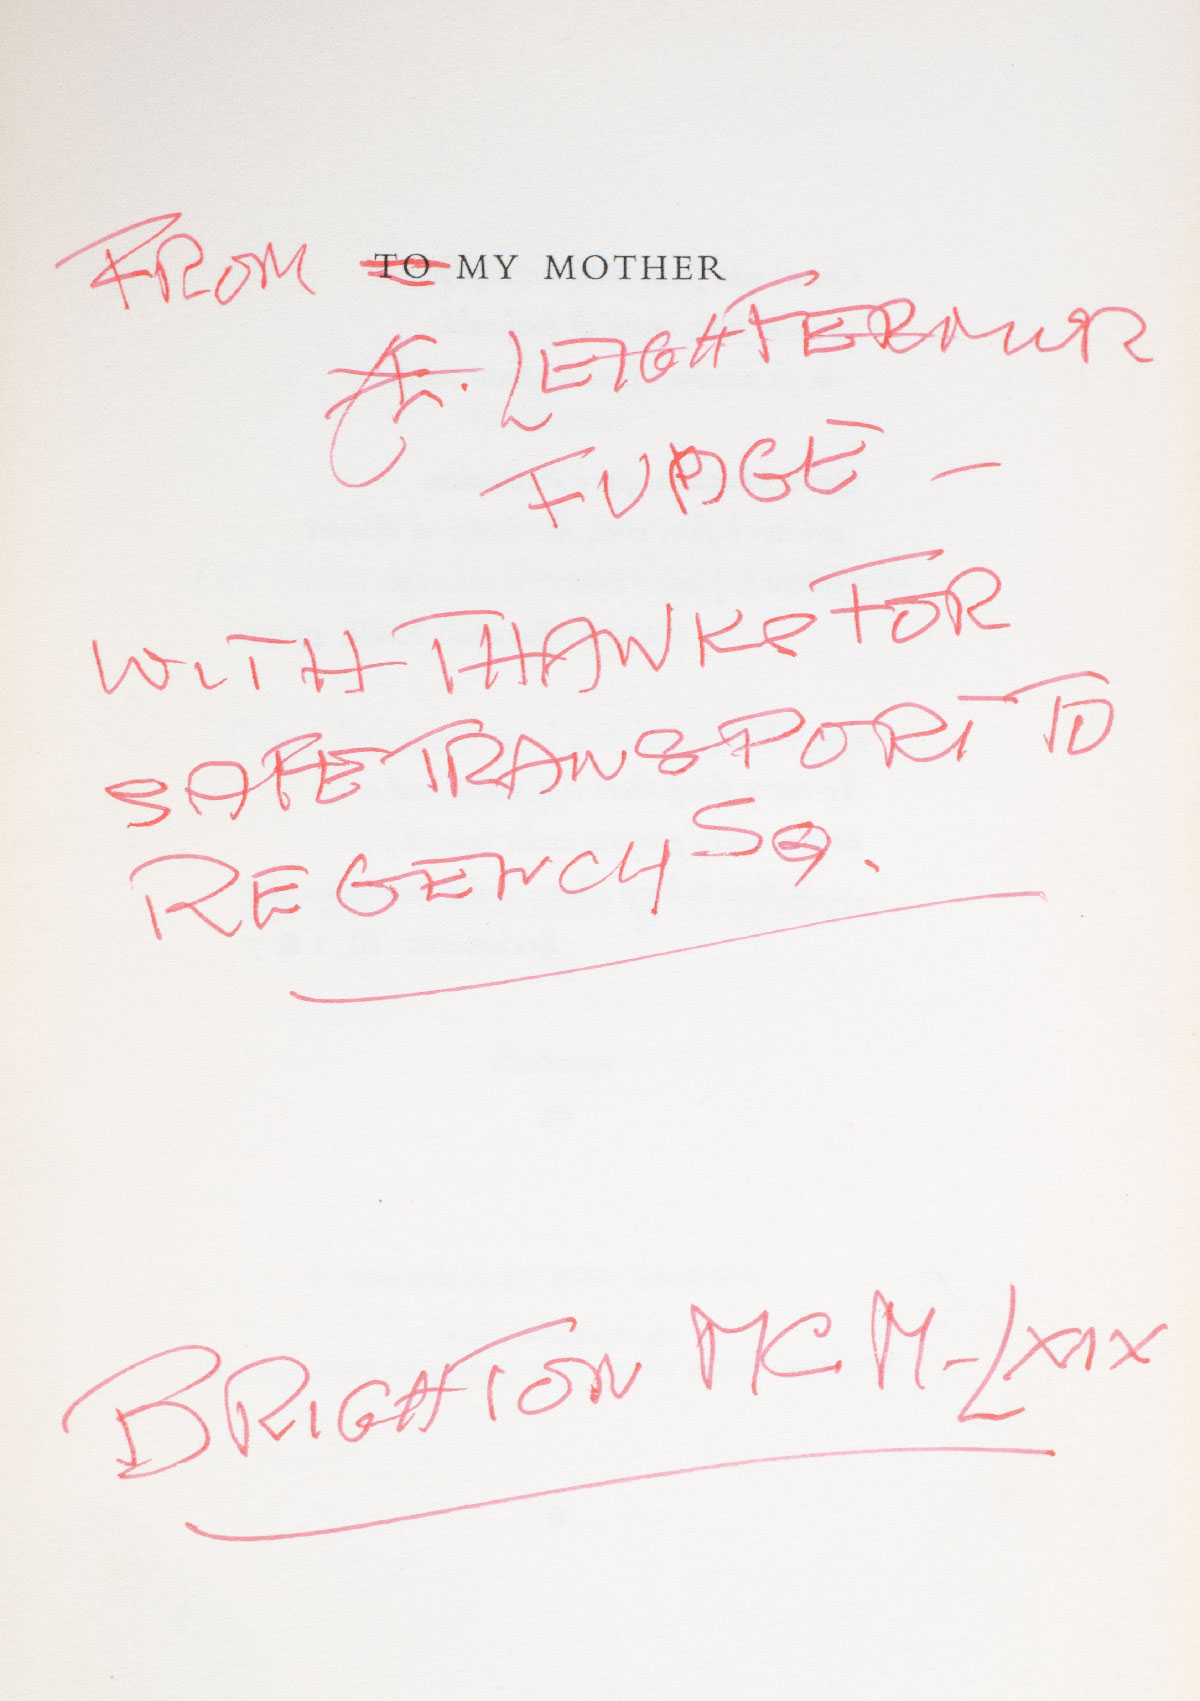 FROM TO MY MOTHER
Æ. LEIGH FERMUR
FUDGE —
WITH THANKS FOR
SAFE TRANSPORT TO
REGENCY SQ.
BRIGHTON MCM-LXIX